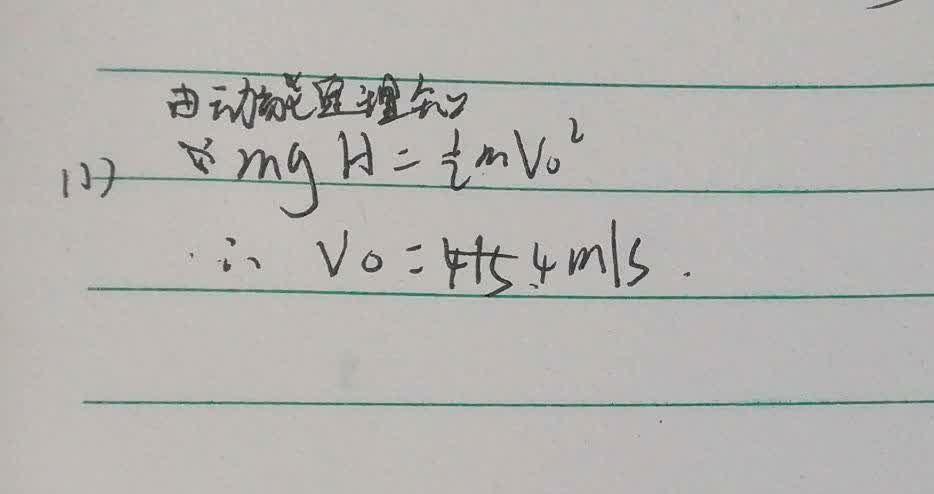 由动能定理知
(1) mgH = ½mV₀²
∴ V₀ = 4 m/s.